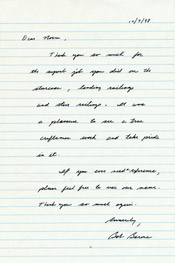 10/9/98
Dear Norm,
Thank you so much for
the superb job you did on the
staircase, landing railings
and stair railings. It was
a pleasure to see a true
craftsman work and take pride
in it.
If you ever need reference,
please feel free to use our name.
Thank you so much again.
Sincerely,
Bob